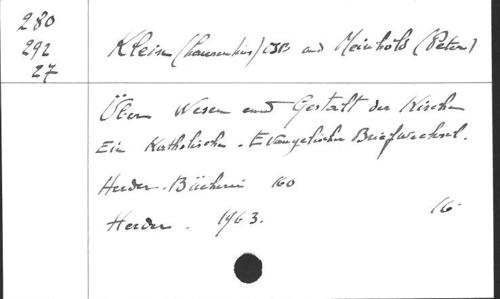 280
292
27
Klein (Laurentius) OSB and Meinhold (Peter)
Über Wesen und Gestalt der Kirche
Ein Katholisch - Evangelischer Briefwechsel.
Herder-Bücherei 160
Herder. 1963. 16